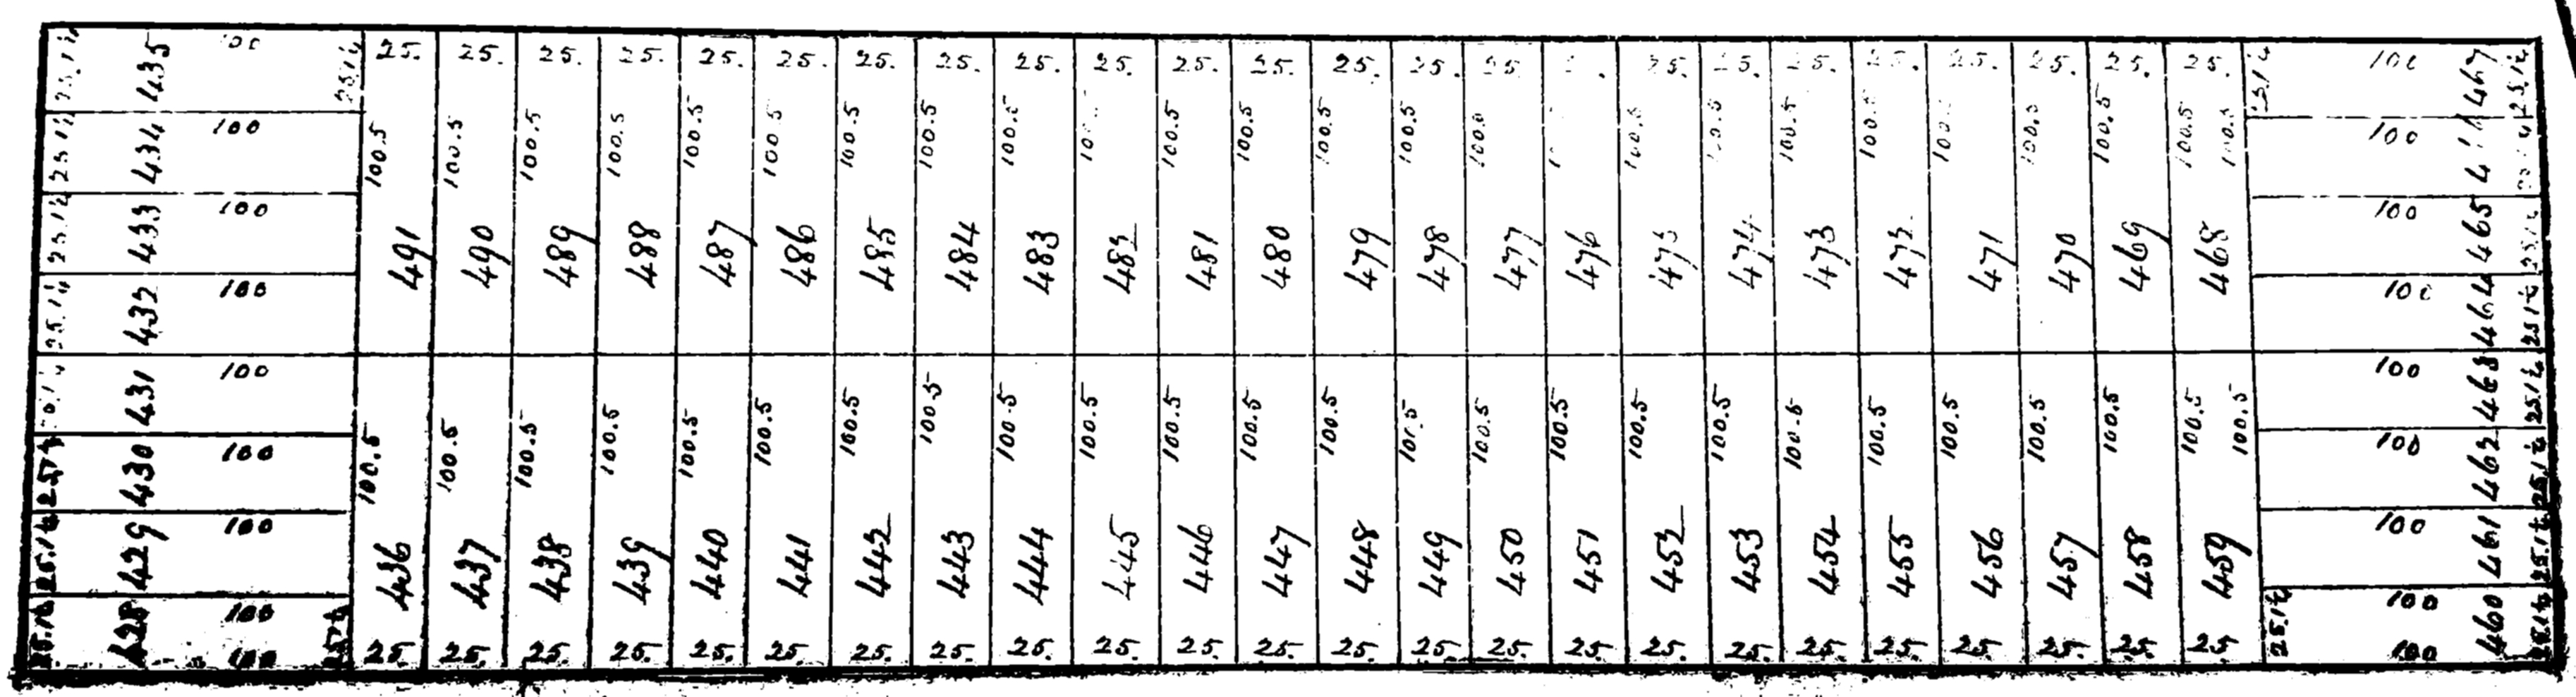 100 25. 25. 25. 25. 25. 25. 25. 25. 25. 25. 25. 25. 25. 25. 25. 25. 25. 25. 25. 25. 25. 25. 25. 100
435 467
100.5 100.5 100.5 100.5 100.5 100.5 100.5 100.5 100.5 100.5 100.5 100.5 100.5 100.5 100.5 100.5 100.5 100.5 100.5 100.5 100.5
434 100 100
433 100 491 490 489 488 487 486 485 484 483 482 481 480 479 478 477 476 475 474 473 472 471 470 469 468 100 465
432 100 100 464
431 100 100 463
100.5 100.5 100.5 100.5 100.5 100.5 100.5 100.5 100.5 100.5 100.5 100.5 100.5 100.5 100.5 100.5 100.5 100.5 100.5 100.5 100.5 100.5 100.5 100.5 100.5
430 100 100 462
429 100 436 437 438 439 440 441 442 443 444 445 446 447 448 449 450 451 452 453 454 455 456 457 458 459 100 461
428 100 100 460
100 25. 25. 25. 25. 25. 25. 25. 25. 25. 25. 25. 25. 25. 25. 25. 25. 25. 25. 25. 25. 25. 25. 25. 25. 100